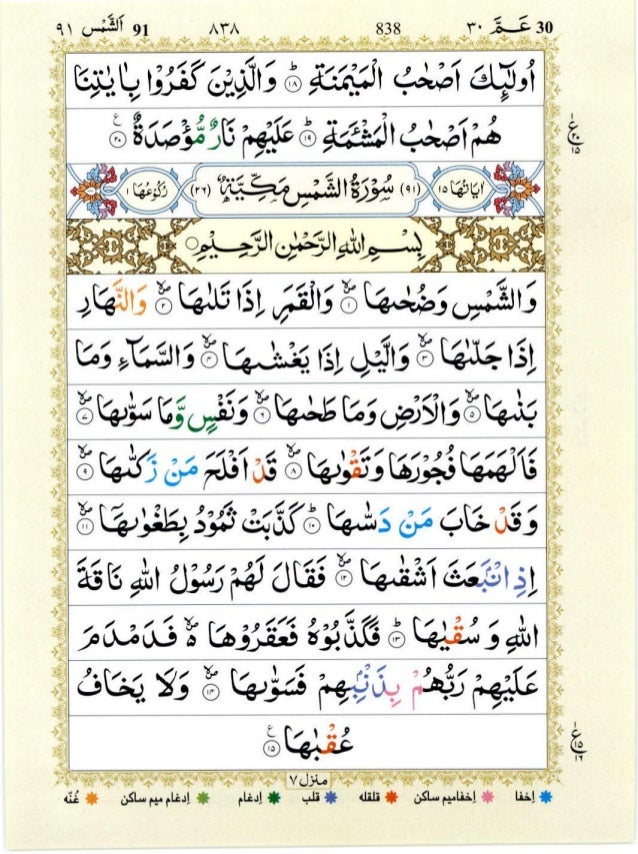 30 عَمَّ ٣٠ 838 ٨٣٨ 91 اَلشَّمْس ٩١
اُولٰٓئِكَ اَصْحٰبُ الْمَيْمَنَةِ ؕ ۱۸ وَالَّذِيْنَ كَفَرُوْا بِاٰيٰتِنَا
هُمْ اَصْحٰبُ الْمَشْـَٔمَةِ ؕ ۱۹ عَلَيْهِمْ نَارٌ مُّؤْصَدَةٌ ۲۰ ع
ع ۲۰ ۱۵
اٰيَاتُهَا ۱۵ (٩١) سُوْرَةُ الشَّمْسِ مَكِّيَّةٌ (٢٦) رُكُوْعُهَا ١
بِسْمِ اللّٰهِ الرَّحْمٰنِ الرَّحِيْمِ
وَالشَّمْسِ وَضُحٰىهَا ۱ وَالْقَمَرِ اِذَا تَلٰىهَا ۲ وَالنَّهَارِ
اِذَا جَلّٰىهَا ۳ وَالَّيْلِ اِذَا يَغْشٰىهَا ۴ وَالسَّمَآءِ وَمَا
بَنٰىهَا ۵ وَالْاَرْضِ وَمَا طَحٰىهَا ۶ وَنَفْسٍ وَّمَا سَوّٰىهَا ۷
فَاَلْهَمَهَا فُجُوْرَهَا وَتَقْوٰىهَا ۸ قَدْ اَفْلَحَ مَنْ زَكّٰىهَا ۹
وَقَدْ خَابَ مَنْ دَسّٰىهَا ؕ ۱۰ كَذَّبَتْ ثَمُوْدُ بِطَغْوٰىهَا ۱۱
اِذِ انْۢبَعَثَ اَشْقٰىهَا ۱۲ فَقَالَ لَهُمْ رَسُوْلُ اللّٰهِ نَاقَةَ
اللّٰهِ وَ سُقْيٰهَا ؕ ۱۳ فَكَذَّبُوْهُ فَعَقَرُوْهَا ۙ۬ فَدَمْدَمَ
عَلَيْهِمْ رَبُّهُمْ بِذَنْۢبِهِمْ فَسَوّٰىهَا ۱۴ وَلَا يَخَافُ
عُقْبٰهَا ۱۵ ع
ع ۱۵ ۱۶
منزل ٧
اِخفا اِخفامیم ساکن قلقله قلب اِدغام اِدغام میم ساکن غُنّه